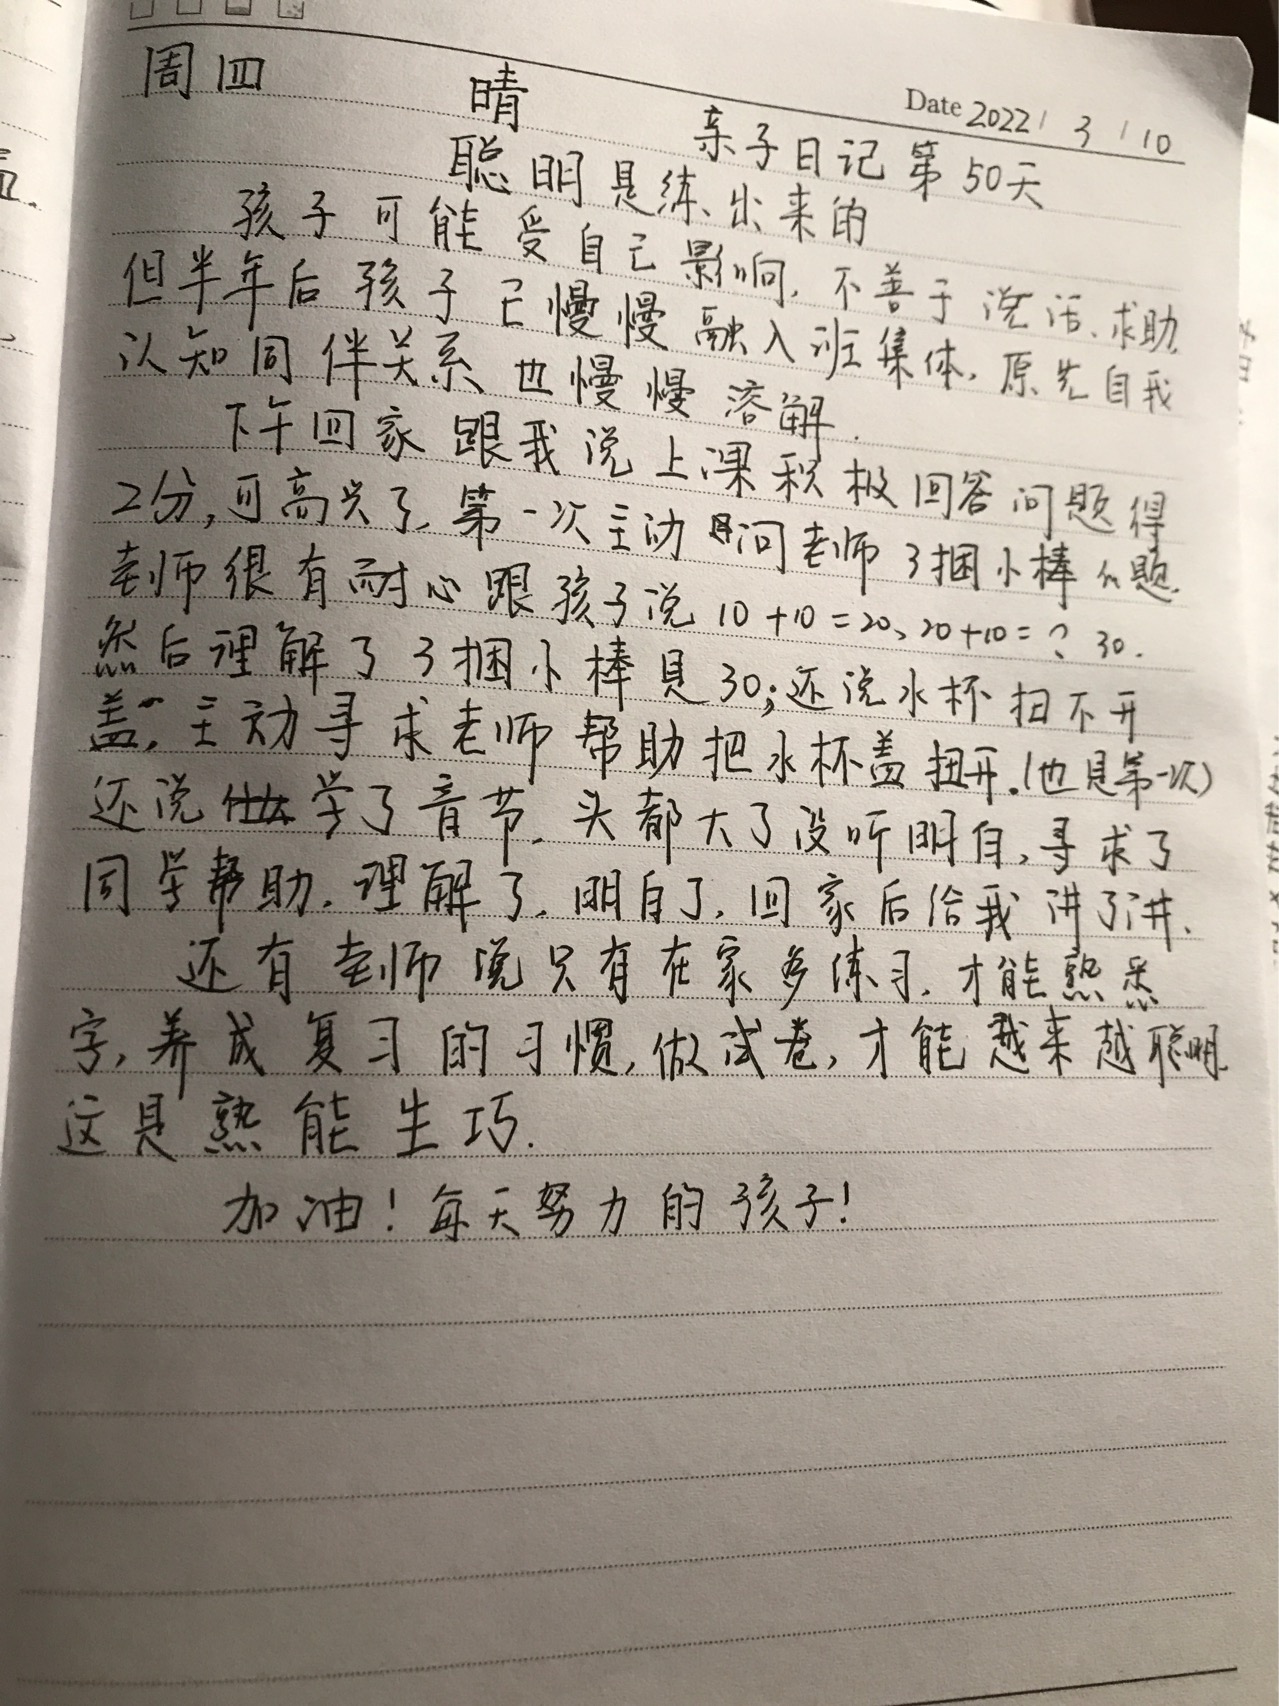 周四 晴 Date 2022/3/10
亲子日记第50天
聪明是练出来的
孩子可能受自己影响,不善于说话、求助,
但半年后孩子已慢慢融入班集体,原先自我
认知同伴关系也慢慢溶解.
下午回家跟我说上课积极回答问题得
2分,可高兴了,第一次主动问老师3捆小棒问题.
老师很有耐心跟孩子说10+10=20、20+10=?30.
然后理解了3捆小棒是30;还说水杯扭不开
盖,主动寻求老师帮助把水杯盖扭开.(也是第一次)
还说学了音节,头都大了没听明白,寻求了
同学帮助,理解了,明白了,回家后给我讲了讲.
还有老师说只有在家多练习,才能熟悉
字,养成复习的习惯,做试卷,才能越来越聪明.
这是熟能生巧.
加油!每天努力的孩子!